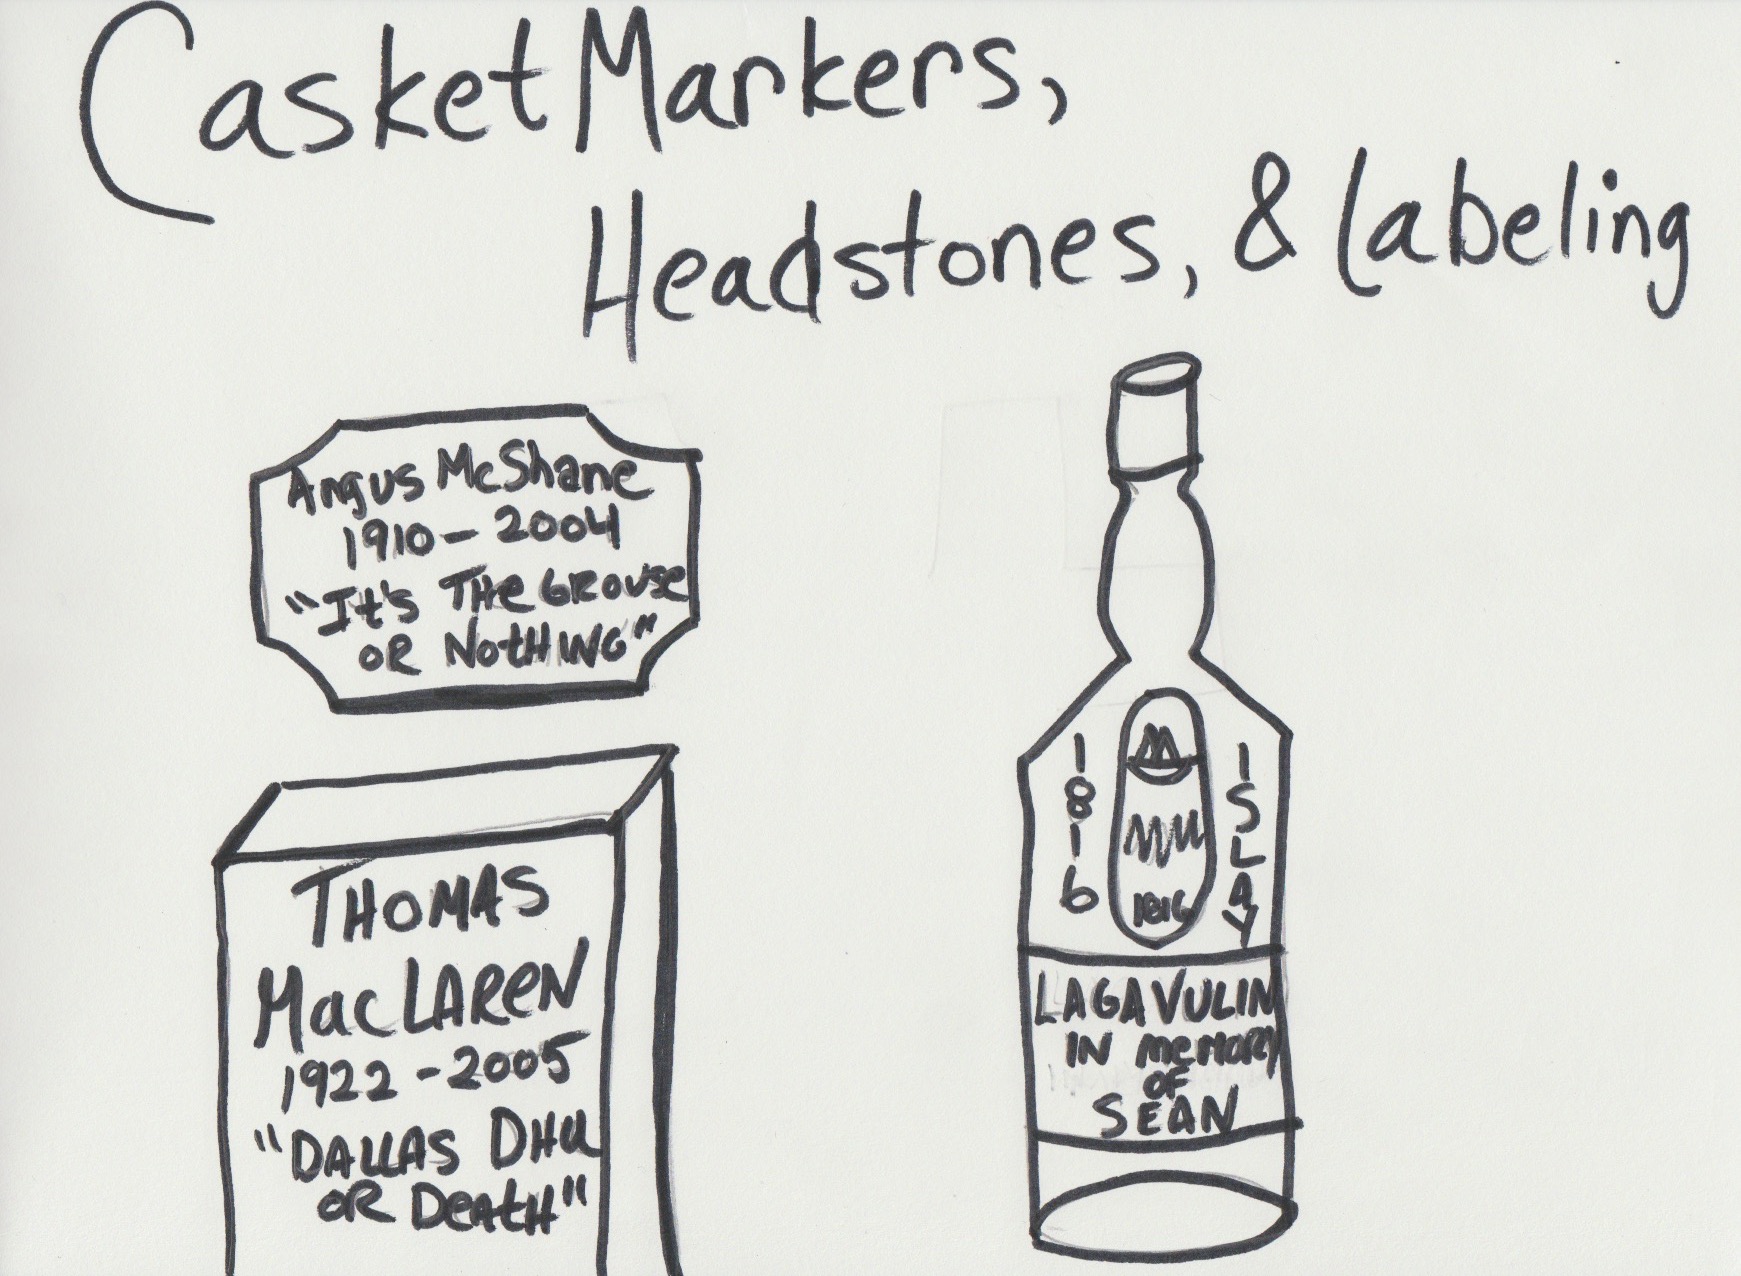 Casket Markers,
Headstones, & Labeling
Angus McShane
1910 - 2004
"It's The Grouse
or Nothing"
Thomas
MacLaren
1922 - 2005
"Dallas Dhu
or Death"
1816
1816
ISLAY
LAGAVULIN
IN MEMORY
OF
SEAN